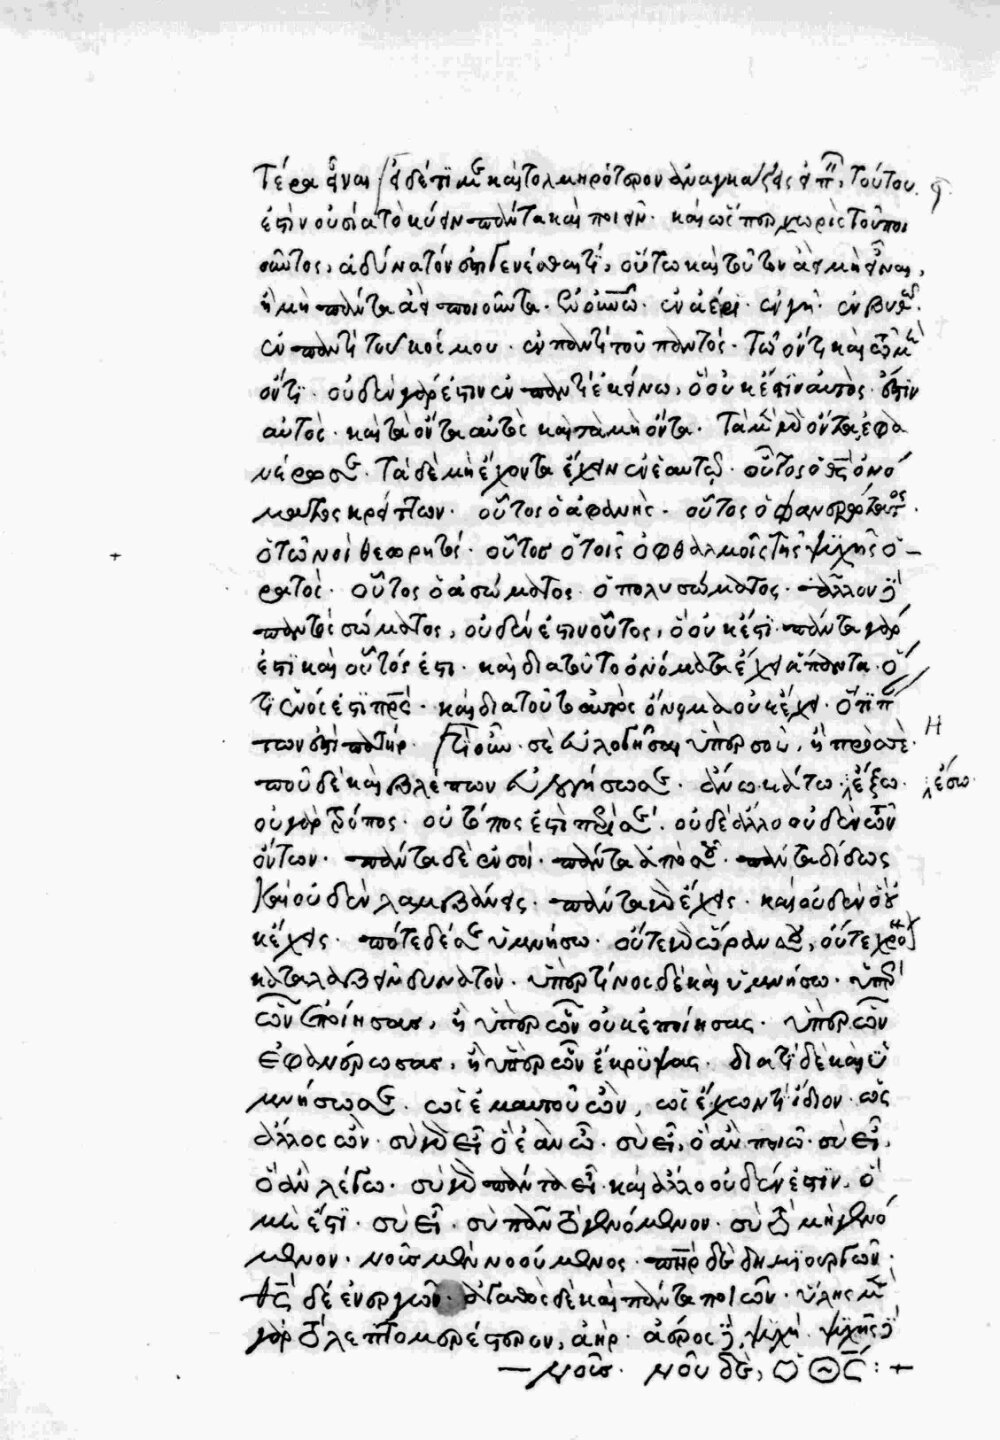 τέρα εἶναι. εἰ δέ τί με καὶ τολμηρότερον ἀναγκάζεις εἰπεῖν, τούτου
ἐστὶν οὐσία τὸ κύειν πάντα καὶ ποιεῖν. καὶ ὥσπερ χωρὶς τοῦ ποι
οῦντος, ἀδύνατόν ἐστι γενέσθαι τι, οὕτω καὶ τοῦτον ἀεὶ μὴ εἶναι,
ἢ μὴ πάντα ἀεὶ ποιοῦντα. ἐν οὐρανῷ. ἐν ἀέρι. ἐν γῇ. ἐν βυθῷ.
ἐν παντὶ τοῦ κόσμου. ἐν παντὶ τοῦ παντός. τῷ ὄντι καὶ τῷ μὴ
ὄντι. οὐδὲν γάρ ἐστιν ἐν παντὶ ἐκείνῳ, ὃ οὐκ ἔστιν αὐτός. ἔστιν
αὐτὸς καὶ τὰ ὄντα αὐτὸς καὶ τὰ μὴ ὄντα. τὰ μὲν γὰρ ὄντα, ἐφα
νέρωσε. τὰ δὲ μὴ ἔχοντα ἔχειν ἐν ἑαυτῷ. οὗτος ὁ θς ὀνό
ματος κρείττων. οὗτος ὁ ἀφανής. οὗτος ὁ φανερώτατος.
ὁ τῷ νοῒ θεωρητός. οὗτος ὁ τοῖς ὀφθαλμοῖς τῆς ψυχῆς ὁ
ρατός. οὗτος ὁ ἀσώματος. ὁ πολυσώματος. μᾶλλον δὲ
παντὸς σώματος, οὐδέν ἐστιν οὗτος, ὃ οὐκ ἔστι. πάντα γάρ
ἐστι καὶ οὗτός ἐστι. καὶ διὰ τοῦτο ὀνόματα ἔχει ἅπαντα. ὅ
τι ἑνός ἐστι πρς. καὶ διὰ τοῦτο αὐτὸς ὄνομα οὐκ ἔχει. ὅτι πάν
των ἐστὶ πατήρ. τίς οὖν σὲ εὐλογῆσαι ὑπὲρ σοῦ, ἢ πρὸς σέ. Η
ποῦ δὲ καὶ βλέπων εὐλογήσω σε. ἄνω κάτω ἔξω. ἔσω.
οὐ γὰρ τρόπος. οὐ τόπος ἐστὶ περὶ σέ. οὐδὲ ἄλλο οὐδὲν τῶν
ὄντων. πάντα δὲ ἐν σοί. πάντα ἀπὸ σοῦ. πάντα δίδως
καὶ οὐδὲν λαμβάνεις. πάντα γὰρ ἔχεις. καὶ οὐδὲν ὃ οὐ
κ ἔχεις. πότε δέ σε ὑμνήσω. οὔτε γὰρ ὥραν σου, οὔτε χρόνον
καταλαβεῖν δυνατόν. ὑπὲρ τίνος δὲ καὶ ὑμνήσω. ὑπὲρ
ὧν ἐποίησας, ἢ ὑπὲρ ὧν οὐκ ἐποίησας. ὑπὲρ ὧν
ἐφανέρωσας, ἢ ὑπὲρ ὧν ἔκρυψας. διὰ τί δὲ καὶ ὑ
μνήσω σε. ὡς ἐμαυτοῦ ὤν, ὡς ἔχων τι ἴδιον. ὡς
ἄλλος ὤν. σὺ γὰρ εἶ ὃ ἐὰν ὦ. σὺ εἶ, ὃ ἂν ποιῶ. σὺ εἶ,
ὃ ἂν λέγω. σὺ γὰρ πάντα εἶ καὶ ἄλλο οὐδέν ἐστιν. ὃ
μὴ ἔστι. σὺ εἶ. σὺ πᾶν τὸ γενόμενον. σὺ τὸ μὴ γενό
μενον. νοῦς μὲν νοούμενος. πηρ δὲ δημιουργῶν.
θς δὲ ἐνεργῶν. ἀγαθὸς δὲ καὶ πάντα ποιῶν. ὕλης μὲν
γὰρ τὸ λεπτομερέστερον, ἀήρ. ἀέρος δὲ, ψυχή. ψυχῆς δὲ
νοῦς. νοῦ δὲ, ὁ ΘΣ: +